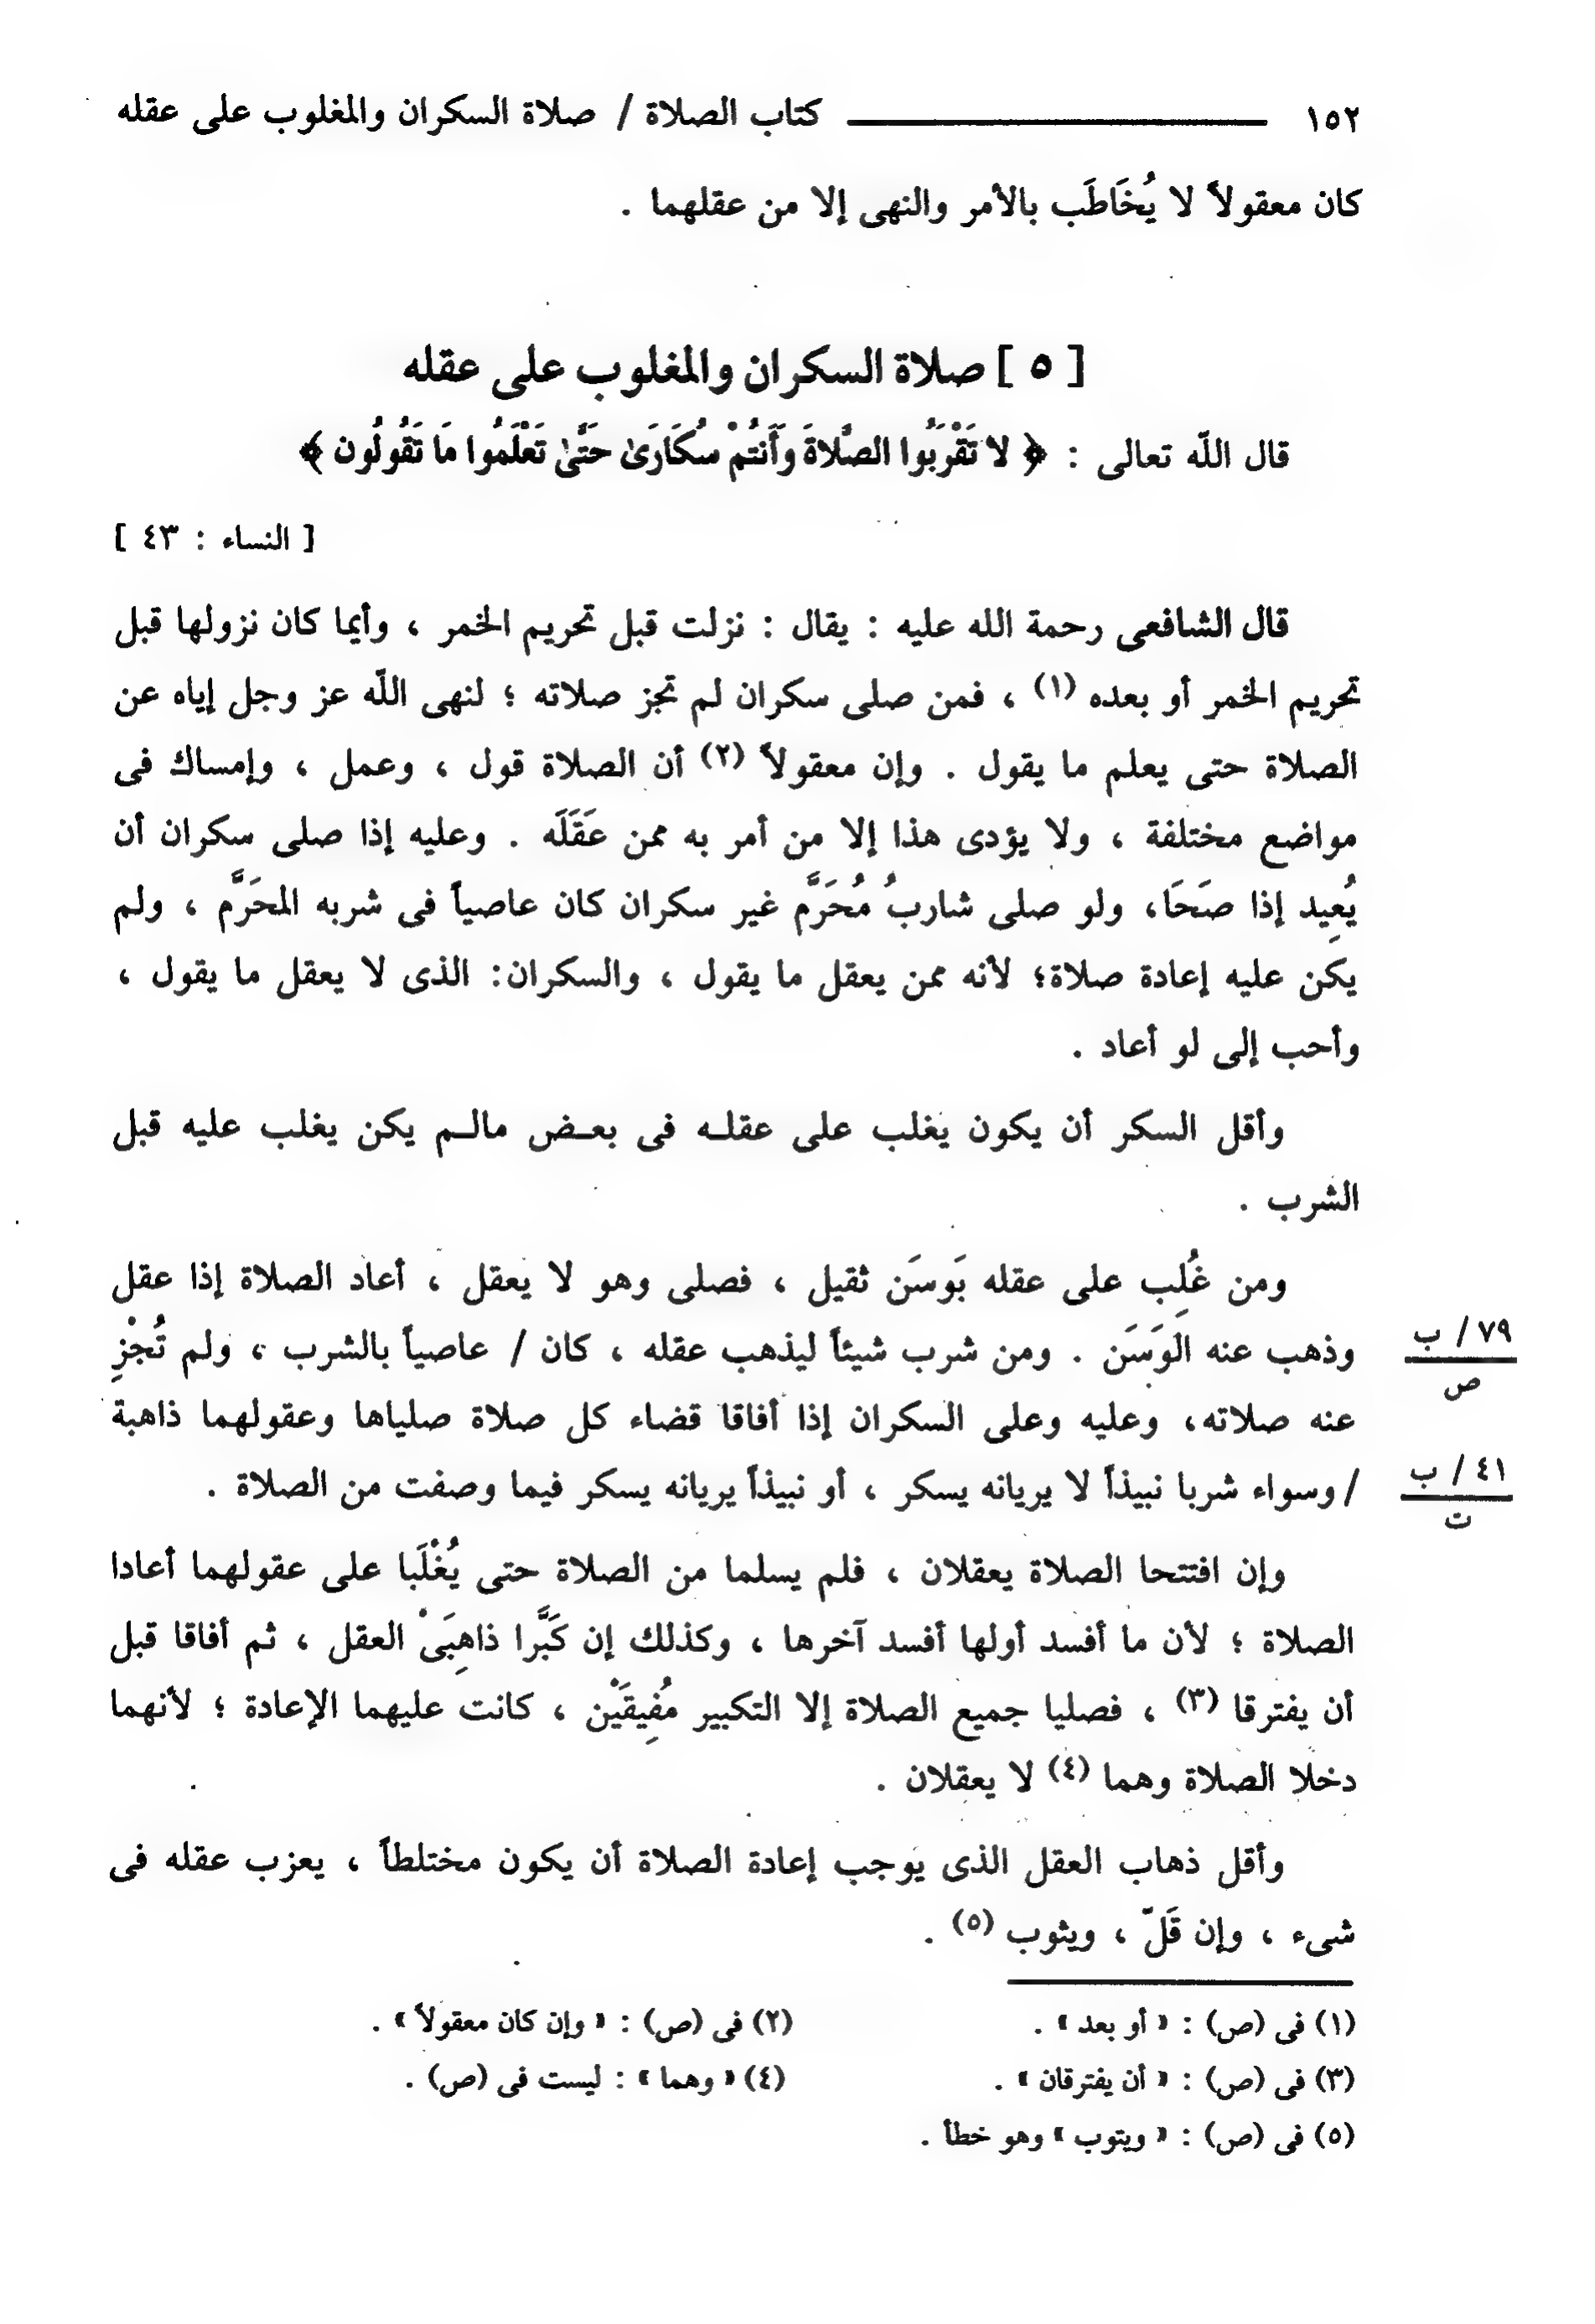 ١٥٢ كتاب الصلاة / صلاة السكران والمغلوب على عقله
كان معقولاً لا يُخَاطَب بالأمر والنهى إلا من عقلهما .
[ ٥ ] صلاة السكران والمغلوب على عقله
قال اللّه تعالى : ﴿ لا تَقْرَبُوا الصَّلاةَ وَأَنتُمْ سُكَارَىٰ حَتَّىٰ تَعْلَمُوا مَا تَقُولُون ﴾
[ النساء : ٤٣ ]
قال الشافعى رحمة الله عليه : يقال : نزلت قبل تحريم الخمر ، وأيما كان نزولها قبل
تحريم الخمر أو بعده (١) ، فمن صلى سكران لم تجز صلاته ؛ لنهى اللّه عز وجل إياه عن
الصلاة حتى يعلم ما يقول . وإن معقولاً (٢) أن الصلاة قول ، وعمل ، وإمساك فى
مواضع مختلفة ، ولا يؤدى هذا إلا من أمر به ممن عَقَلَه . وعليه إذا صلى سكران أن
يُعِيد إذا صَحَا، ولو صلى شاربُ مُحَرَّم غير سكران كان عاصياً فى شربه المحَرَّم ، ولم
يكن عليه إعادة صلاة؛ لأنه ممن يعقل ما يقول ، والسكران: الذى لا يعقل ما يقول ،
وأحب إلى لو أعاد .
وأقل السكر أن يكون يغلب على عقلـه فى بعـض مالـم يكن يغلب عليه قبل
الشرب .
ومن غُلِب على عقله بَوسَن ثقيل ، فصلى وهو لا يعقل ، أعاد الصلاة إذا عقل
وذهب عنه الَوسَن . ومن شرب شيئاً ليذهب عقله ، كان / عاصياً بالشرب ، ولم تُجْزِ
٧٩ / ب
ص
عنه صلاته، وعليه وعلى السكران إذا أفاقا قضاء كل صلاة صلياها وعقولهما ذاهبة
/ وسواء شربا نبيذاً لا يريانه يسكر ، أو نبيذاً يريانه يسكر فيما وصفت من الصلاة .
٤١ / ب
ت
وإن افتتحا الصلاة يعقلان ، فلم يسلما من الصلاة حتى يُغْلَبا على عقولهما أعادا
الصلاة ؛ لأن ما أفسد أولها أفسد آخرها ، وكذلك إن كَبَّرا ذاهِبَىْ العقل ، ثم أفاقا قبل
أن يفترقا (٣) ، فصليا جميع الصلاة إلا التكبير مُفِيقَيْن ، كانت عليهما الإعادة ؛ لأنهما
دخلا الصلاة وهما (٤) لا يعقلان .
وأقل ذهاب العقل الذى يوجب إعادة الصلاة أن يكون مختلطاً ، يعزب عقله فى
شىء ، وإن قَلّ ، ويثوب (٥) .
(١) فى (ص) : « أو بعد » . (٢) فى (ص) : « وإن كان معقولاً » .
(٣) فى (ص) : « أن يفترقان » . (٤) « وهما » : ليست فى (ص) .
(٥) فى (ص) : « ويتوب » وهو خطأ .